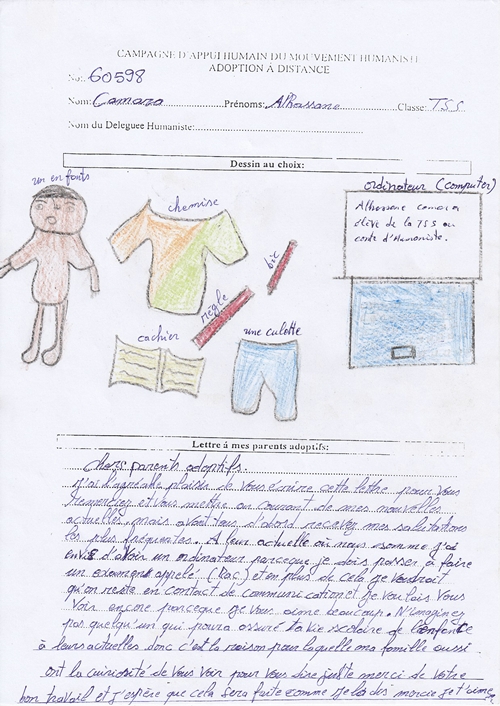 CAMPAGNE D'APPUI HUMAIN DU MOUVEMENT HUMANISTE
ADOPTION À DISTANCE
No: 60598
Nom: Camara Prénoms: Alhassane Classe: TSS
Nom du Deleguee Humaniste:
Dessin au choix:
un enfants
chemise
ordinateur (computer)
Alhassane camara
élève de la TSS au
conte d'Humaniste.
bic
règle
cachier
une culotte
Lettre á mes parents adoptifs:
chers parents adoptifs.
j'ai d'agréable plaisir de vous écrire cette lettre pour vous
remerciez et vous mettre au courant de mes nouvelles
actuelles mais avant tous d'abord recevez mes salutations
les plus fréquentes. A leur actuelle où nous somme j'ai
envie d'avoir un ordinateur parceque je dois passer à faire
un examens appelé (bac) et en plus de cela je voudrait
qu'on reste en contact de communication et je voulais vous
voir encore parceque je vous aime beaucoup. N'imaginez
pas quelqu'un qui pourra assuré ta vie scolaire de l'enfance
à leurs actuelles donc c'est la raison pour laquelle ma famille aussi
ont la curiosité de vous voir pour vous dire juste merci de votre
bon travail et j'espère que cela sera faite comme je le dis mercie je t'aime